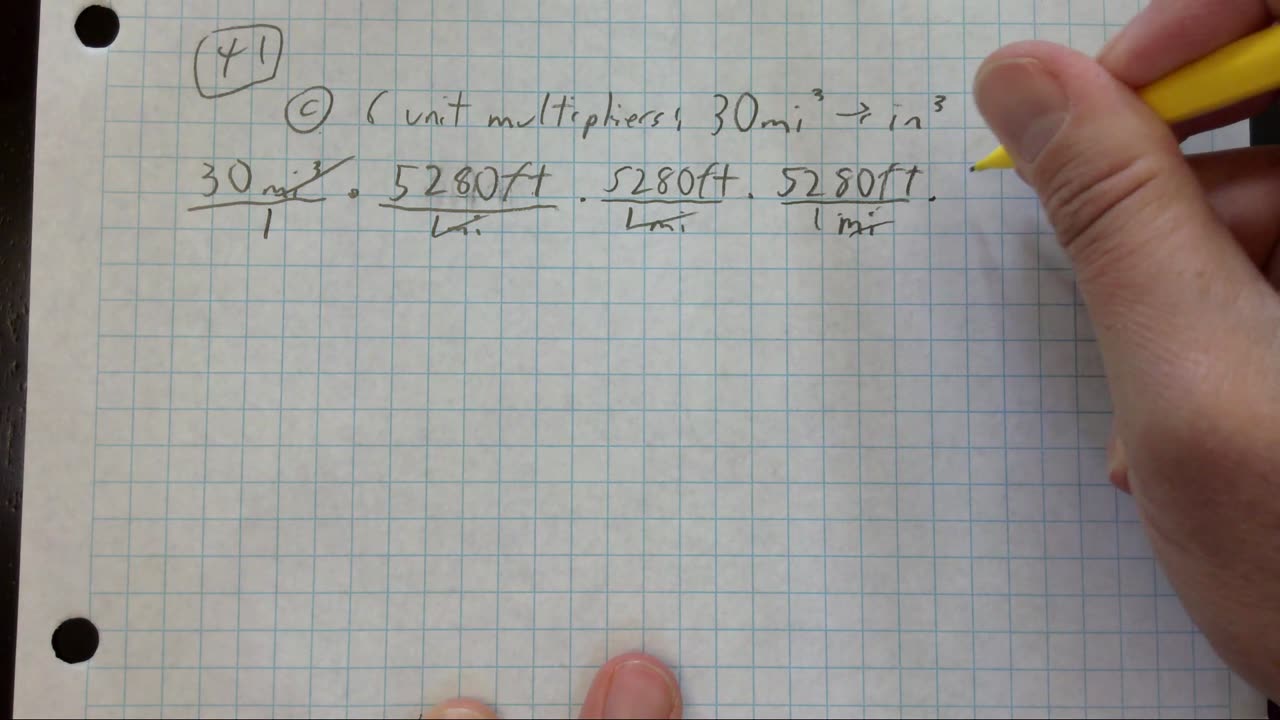 41
ⓒ 6 unit multipliers; 30mi³ → in³
30mi³/1 · 5280ft/1mi · 5280ft/1mi · 5280ft/1mi ·